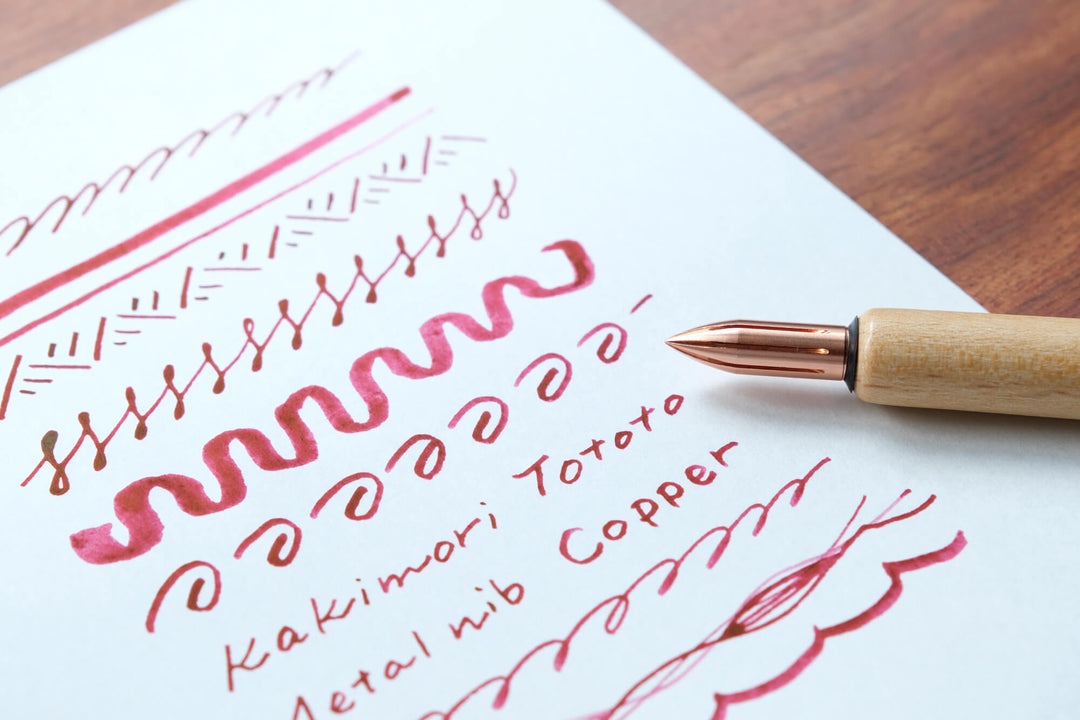 Kakimori Tototo
Metal nib Copper